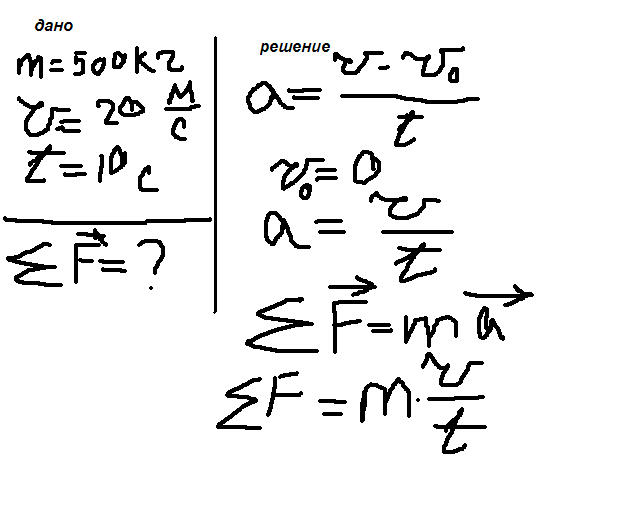 дано
m = 500 кг
v = 20 м/с
t = 10 с
∑F⃗ = ?
решение
a = (v - v₀)/t
v₀ = 0
a = v/t
∑F⃗ = m a⃗
∑F = m · v/t